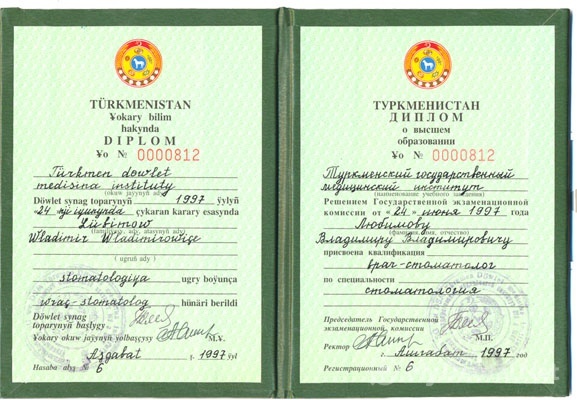 TÜRKMENISTAN
Ɏokary bilim
hakynda
DIPLOM
Ɏo № 0000812
Türkmen dowlet
medisina instituty
(okuw jaýynyň ady)
Döwlet synag toparynyň 1997 ýylyň
24 nji iýunynda çykaran karary esasynda
Lübimow
Wladimir Wladimirowiçe
(familiýasy, ady, atasynyň ady)
( ugruň ady )
stomatologiýa ugry boýunça
wraç-stomatolog hünäri berildi
Döwlet synag
toparynyň başlygy
Ɏokary okuw jaýynyň ýolbaşçysy M.Ý.
Aşgabat ş. 1997 ýyl
Hasaba alyş № 6
ТУРКМЕНИСТАН
ДИПЛОМ
о высшем
образовании
Ɏo № 0000812
Туркменский государственный
медицинский институт
(наименование учебного заведения)
Решением Государственной экзаменационной
комиссии от «24» июня 1997 года
Любимову
(фамилия, имя, отчество)
Владимиру Владимировичу
присвоена квалификация
врач-стоматолог
по специальности
стоматология
Председатель Государственной
экзаменационной комиссии
Ректор М.П.
г. Ашгабат 1997 год
Регистрационный № 6